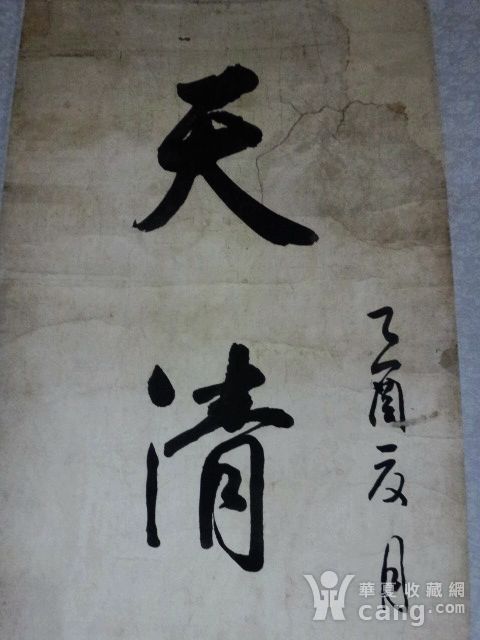 天清
乙酉夏月
華夏收藏網
cang.com